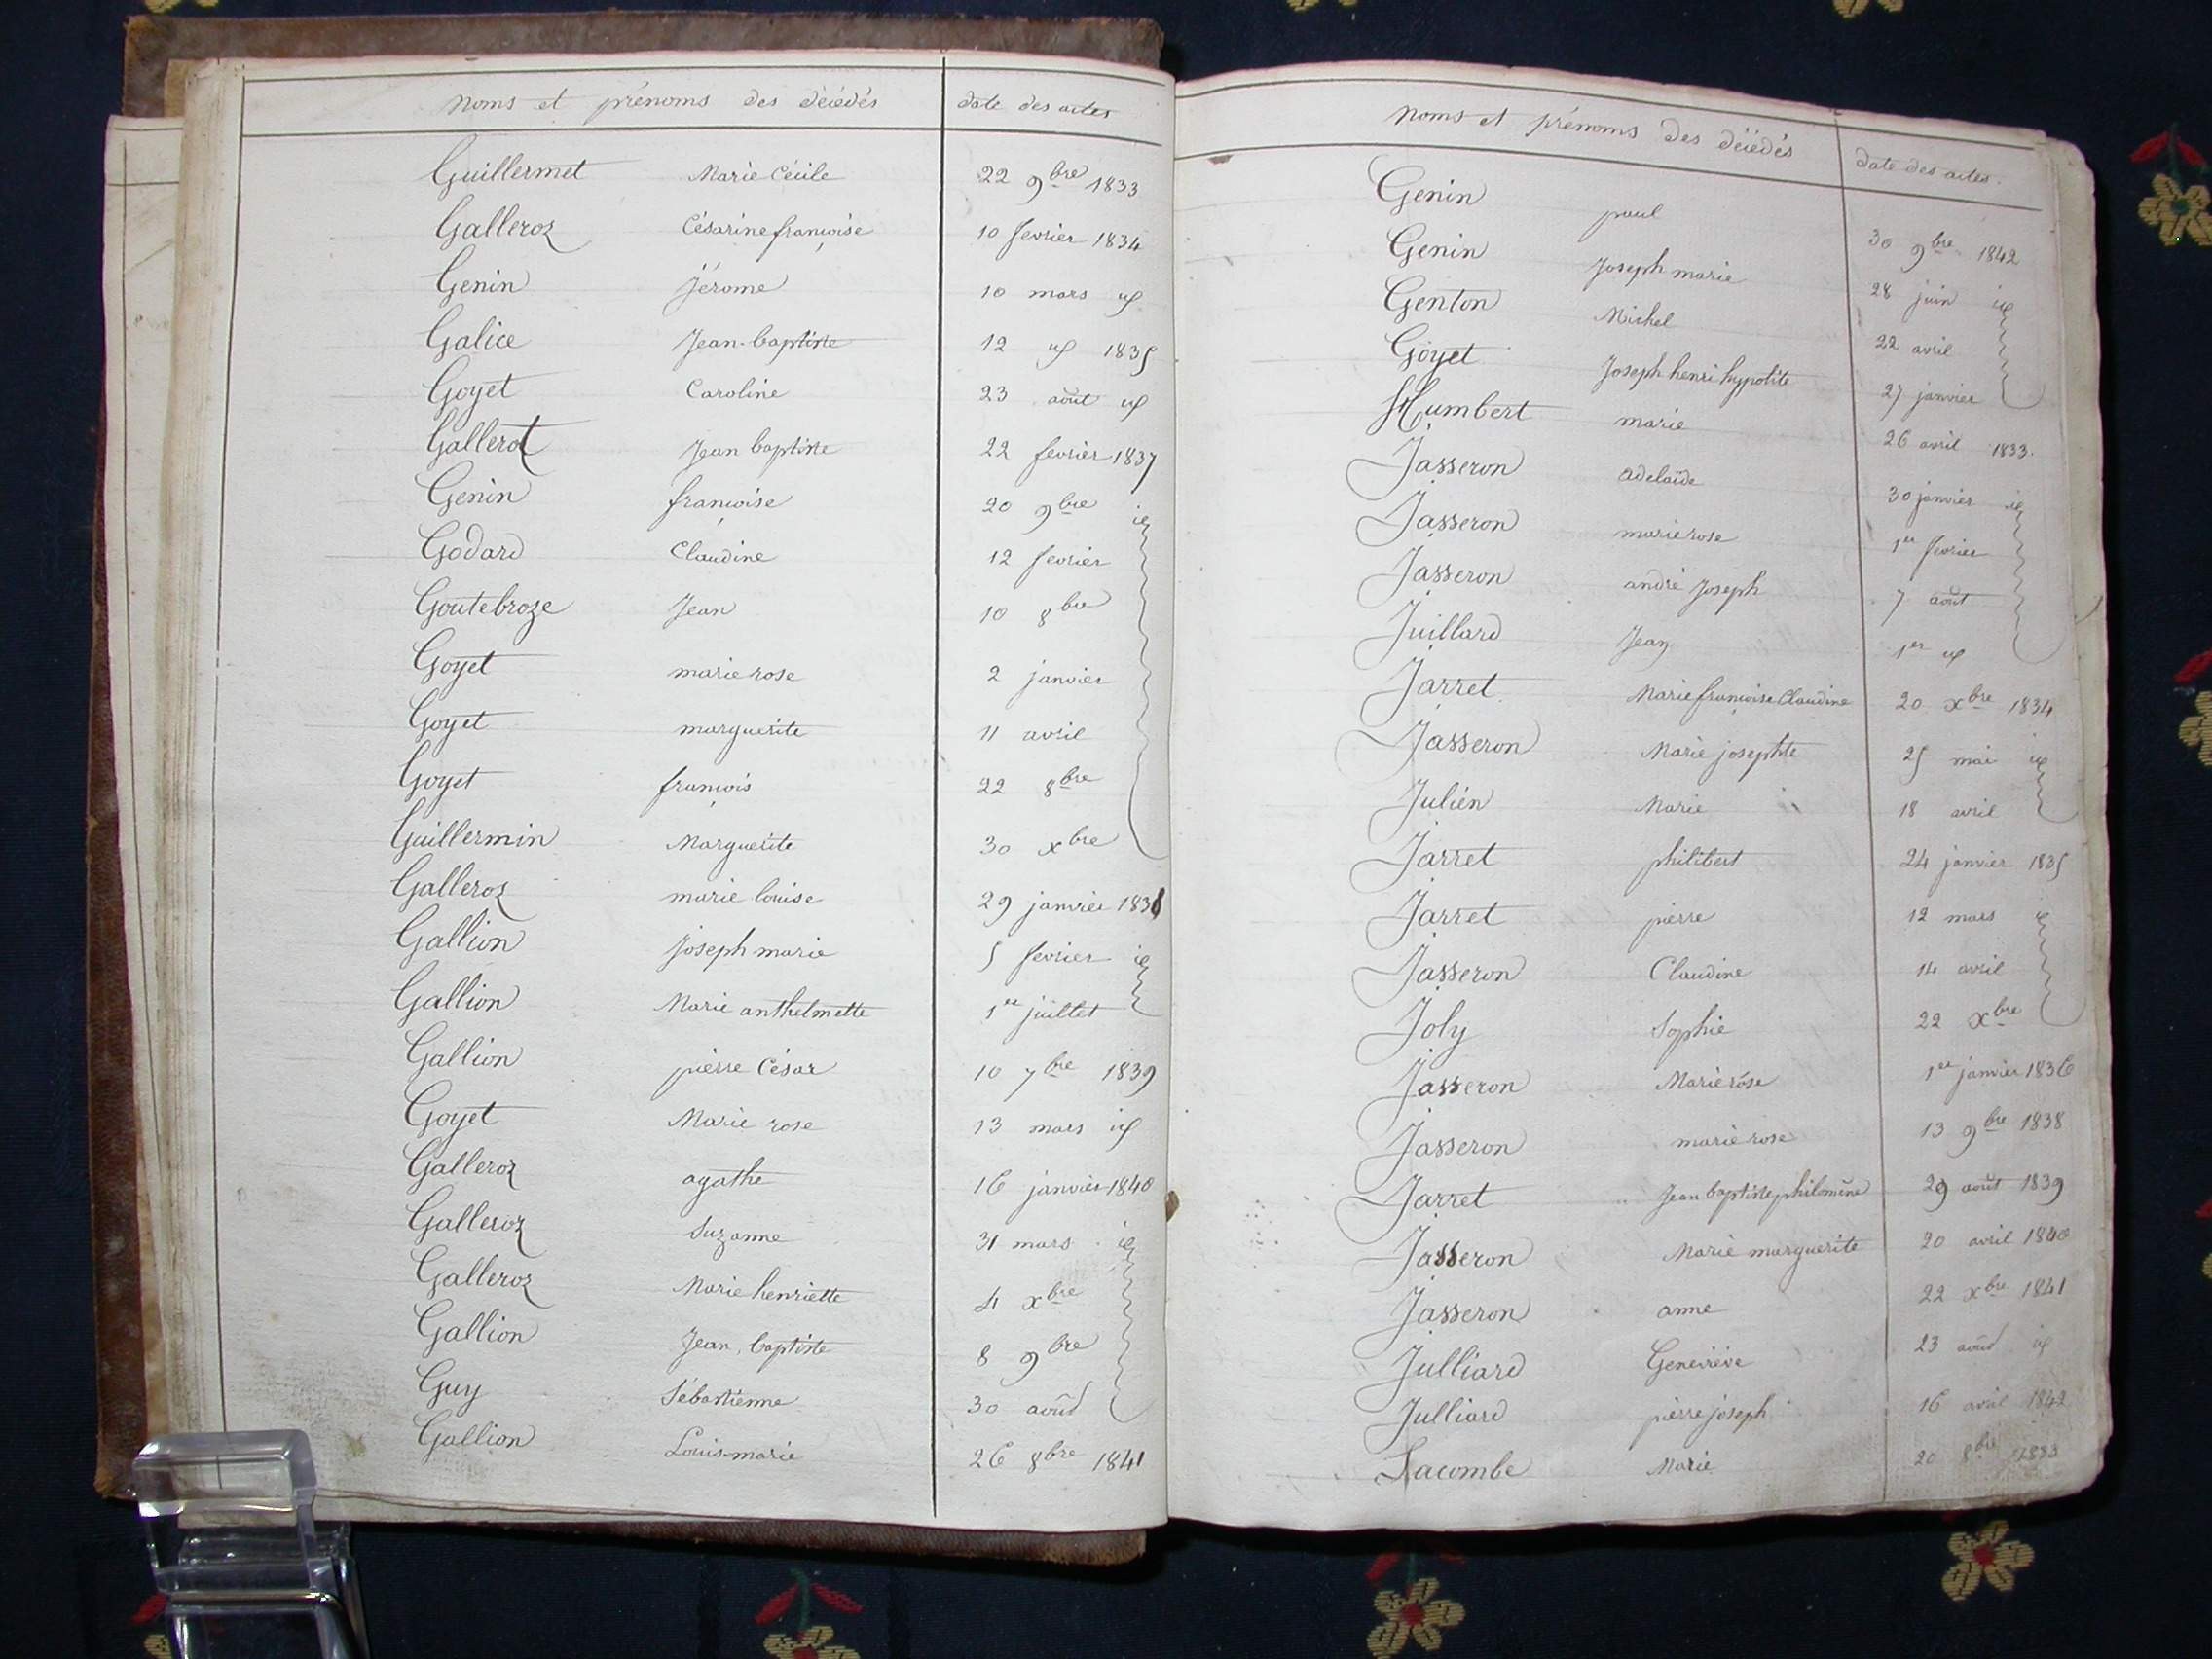 Noms et prénoms des décédés date des actes
Guillermet Marie Cécile 22 9bre 1833
Galleroz Césarine françoise 10 fevrier 1834
Genin jérome 10 mars id
Galice Jean-baptiste 12 id 1835
Goyet Caroline 23 août id
Gallerot Jean baptiste 22 fevrier 1837
Genin françoise 20 9bre id
Godard Claudine 12 fevrier
Goutebroze Jean 10 8bre
Goyet marie rose 2 janvier
Goyet marguerite 11 avril
Goyet françois 22 8bre
Guillermin Marguerite 30 xbre
Galleroz marie louise 29 janvier 1838
Gallion joseph marie 5 fevrier id
Gallion Marie anthelmette 1er juillet
Gallion pierre César 10 7bre 1839
Goyet Marie rose 13 mars id
Galleroz agathe 16 janvier 1840
Galleroz Suzanne 31 mars id
Galleroz Marie henriette 4 xbre
Gallion Jean baptiste 8 9bre
Guy Sébastienne 30 aoûd
Gallion Louis marie 26 8bre 1841
Noms et prénoms des décédés date des actes.
Genin paul 30 9bre 1842
Genin Joseph marie 28 juin id
Genton Michel 22 avril
Goyet Joseph henri hypolite 27 janvier
Humbert marie 26 avril 1833.
Jasseron adelaïde 30 janvier id
Jasseron marie rose 1er fevrier
Jasseron andré Joseph 7 août
Juillard Jean 1er id
Jarret Marie françoise Claudine 20 xbre 1834
Jasseron Marie josephte 25 mai id
Julien Marie 18 avril
Jarret philibert 24 janvier 1835
Jarret pierre 12 mars id
Jasseron Claudine 14 avril
Joly Sophie 22 xbre
Jasseron Marie rose 1er janvier 1836
Jasseron marie rose 13 9bre 1838
Jarret Jean baptiste philomène 29 août 1839
Jasseron Marie marguerite 20 avril 1840
Jasseron anne 22 xbre 1841
Julliard Geneviève 23 aoûd id
Julliard pierre joseph 16 avril 1842
Lacombe Marie 20 8bre 1833